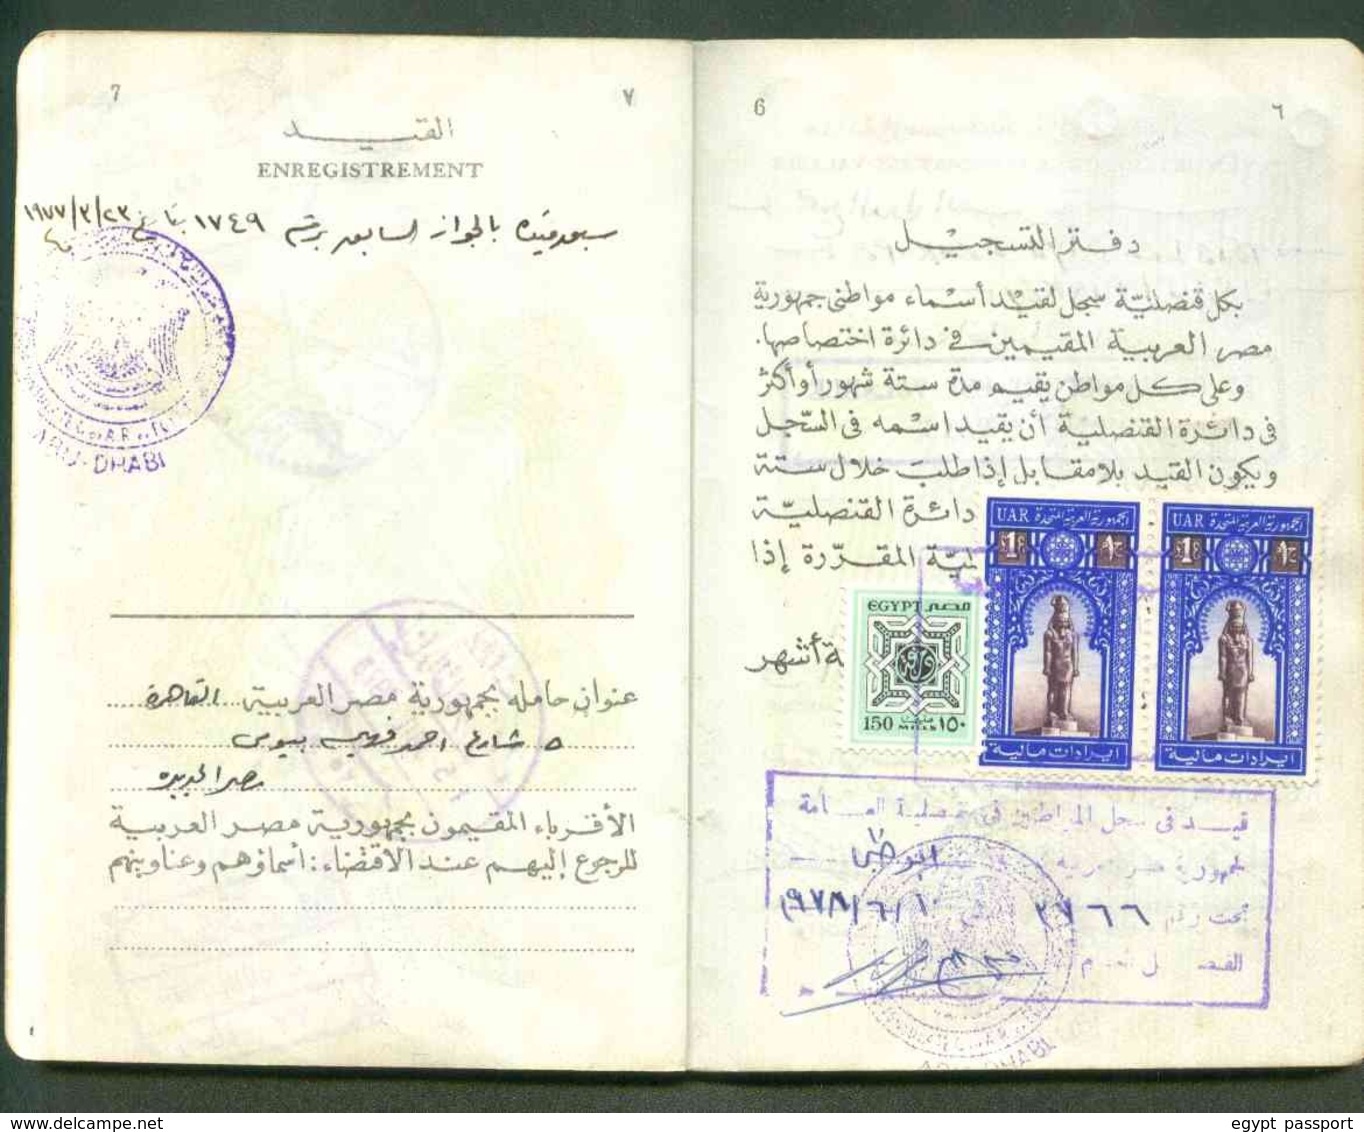 6 ٦
دفتر التسجيل
بكل قنصلية سجل لقيد أسماء مواطنى جمهورية
مصر العربية المقيمين فى دائرة اختصاصها.
وعلى كل مواطن يقيم مدة ستة شهور أو أكثر
فى دائرة القنصلية أن يقيد اسمه فى السجل
ويكون القيد بلا مقابل إذا طلب خلال ستة
دائرة القنصلية
المقررة إذا
أشهر
UAR الجمهورية العربية المتحدة
1
ايرادات مالية
UAR الجمهورية العربية المتحدة
1
ايرادات مالية
EGYPT مصر
150 MILLS ١٥٠
قيد فى سجل المواطنين فى قنصلية العامة
لجمهورية مصر العربية أبوظبى
تحت رقم ٢٧٦٦ فى ١٩٧٨/٦/١٠
القنصل العام
ABU-DHABI
7 ٧
القيد
ENREGISTREMENT
سبق قيده بالجواز السابق برقم ١٧٤٩ بتاريخ ١٩٧٧/٢/٢٣
ABU-DHABI
عنوان حامله بجمهورية مصر العربية القاهرة
٥ شارع احمد فهمى بيومى
مصر الجديدة
الأقرباء المقيمون بجمهورية مصر العربية
للرجوع إليهم عند الاقتضاء: أسماؤهم وعناوينهم
www.delcampe.net
egypt_passport